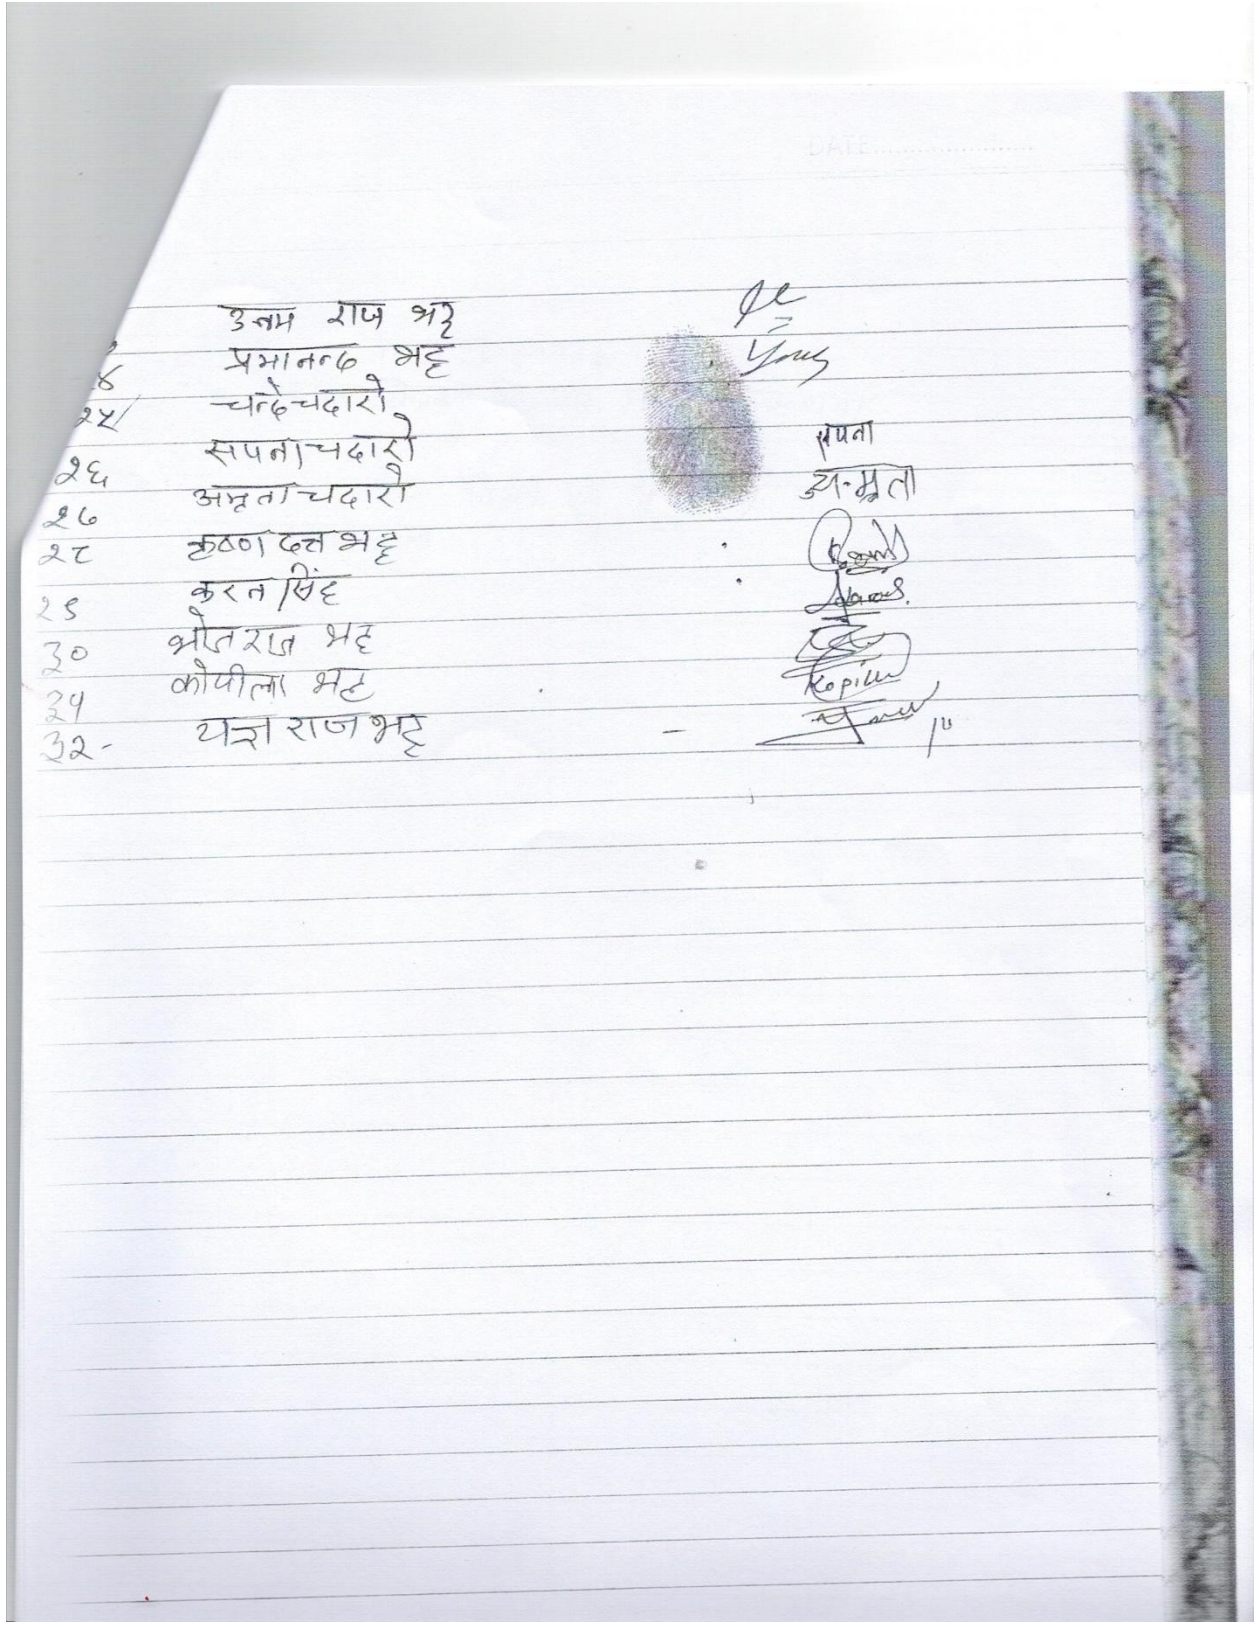 DATE....................
उत्तम राज भट्ट
४ प्रमानन्द भट्ट
२५ चन्द्रे चदारो
२६ सपना चदारो सपना
२७ अमृता चदारो अमृता
२८ कृष्ण दत्त भट्ट
२९ करन सिंह
३० भोजराज भट्ट
३१ कोपीला भट्ट Kopila
३२- यज्ञ राज भट्ट -